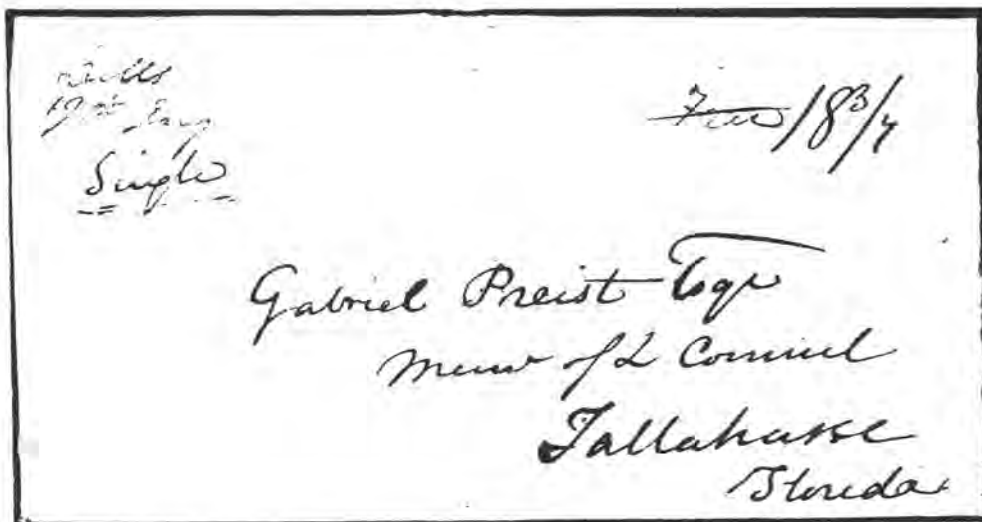 Single
Free 18 3/4
Gabriel Preist Esqr
of L Council
Tallahasse
Florida